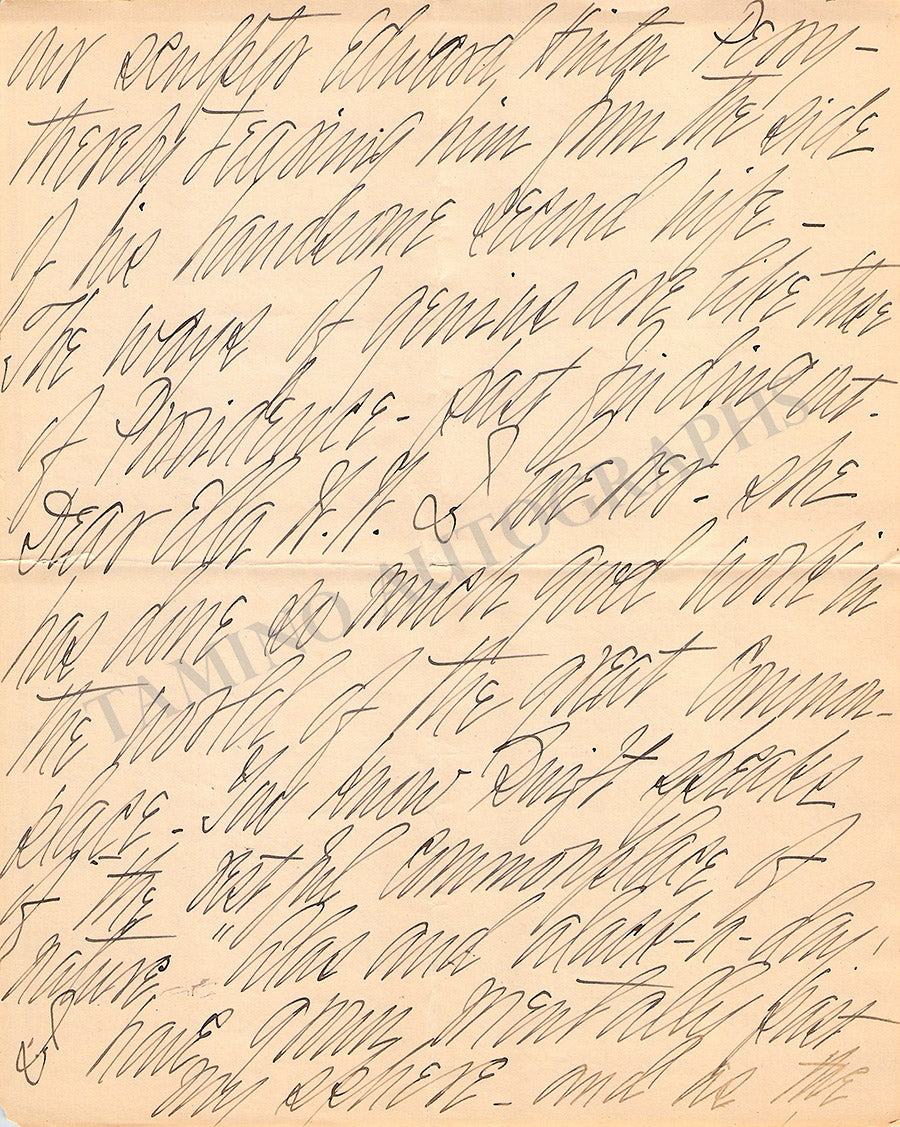 our sculptor Edward Hinton Perry -
thereby tearing him from the side
of his handsome second wife -
The ways of genius are like those
of Providence - past finding out.
Dear Ella W. W. & I he her - she
has done so much good work in
the world of the great common-
place - You know Swift speaks
of the restful commonplace of
nature, "alas and alack-a-day,
I have grown mentally past
my sphere - and as the
TAMINO AUTOGRAPHS